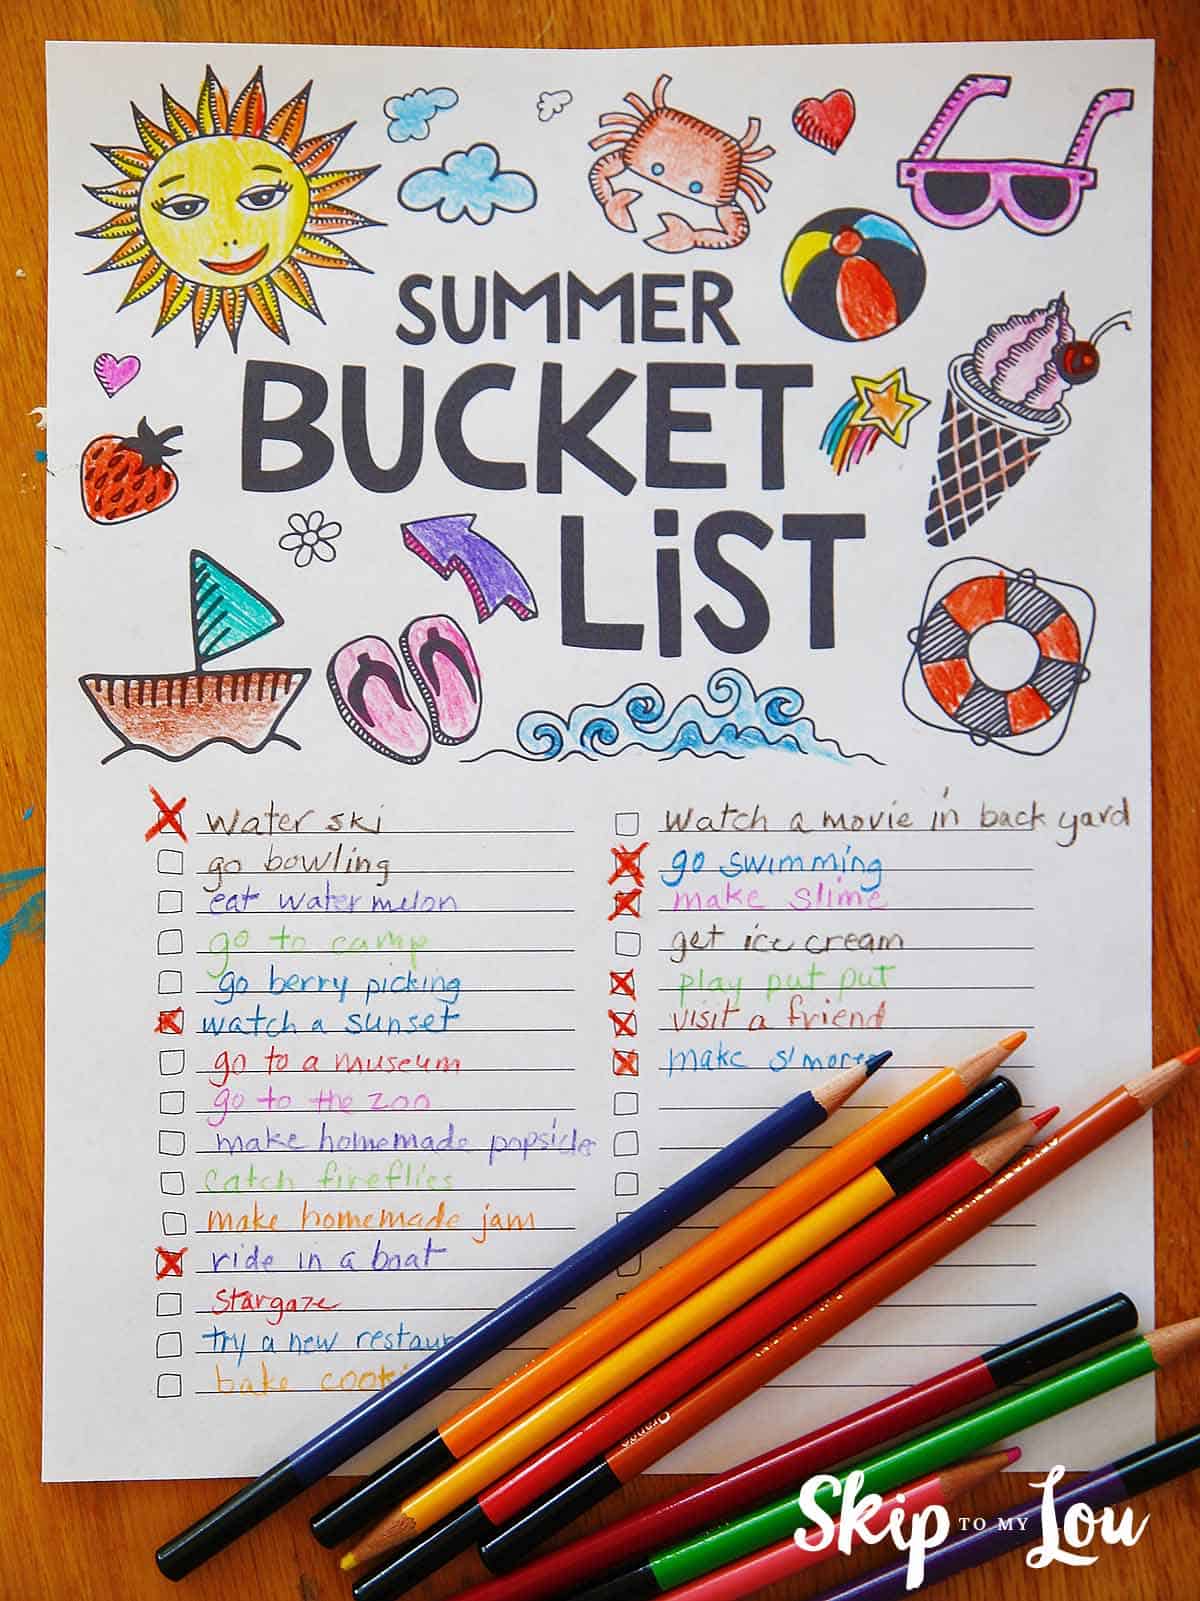 SUMMER
BUCKET
LiST
water ski
go bowling
eat watermelon
go to camp
go berry picking
watch a sunset
go to a museum
go to the zoo
make homemade popsicle
catch fireflies
make homemade jam
ride in a boat
stargaze
try a new restaur
bake cooki
watch a movie in back yard
go swimming
make slime
get ice cream
play put put
visit a friend
make s'mores
Skip TO MY Lou